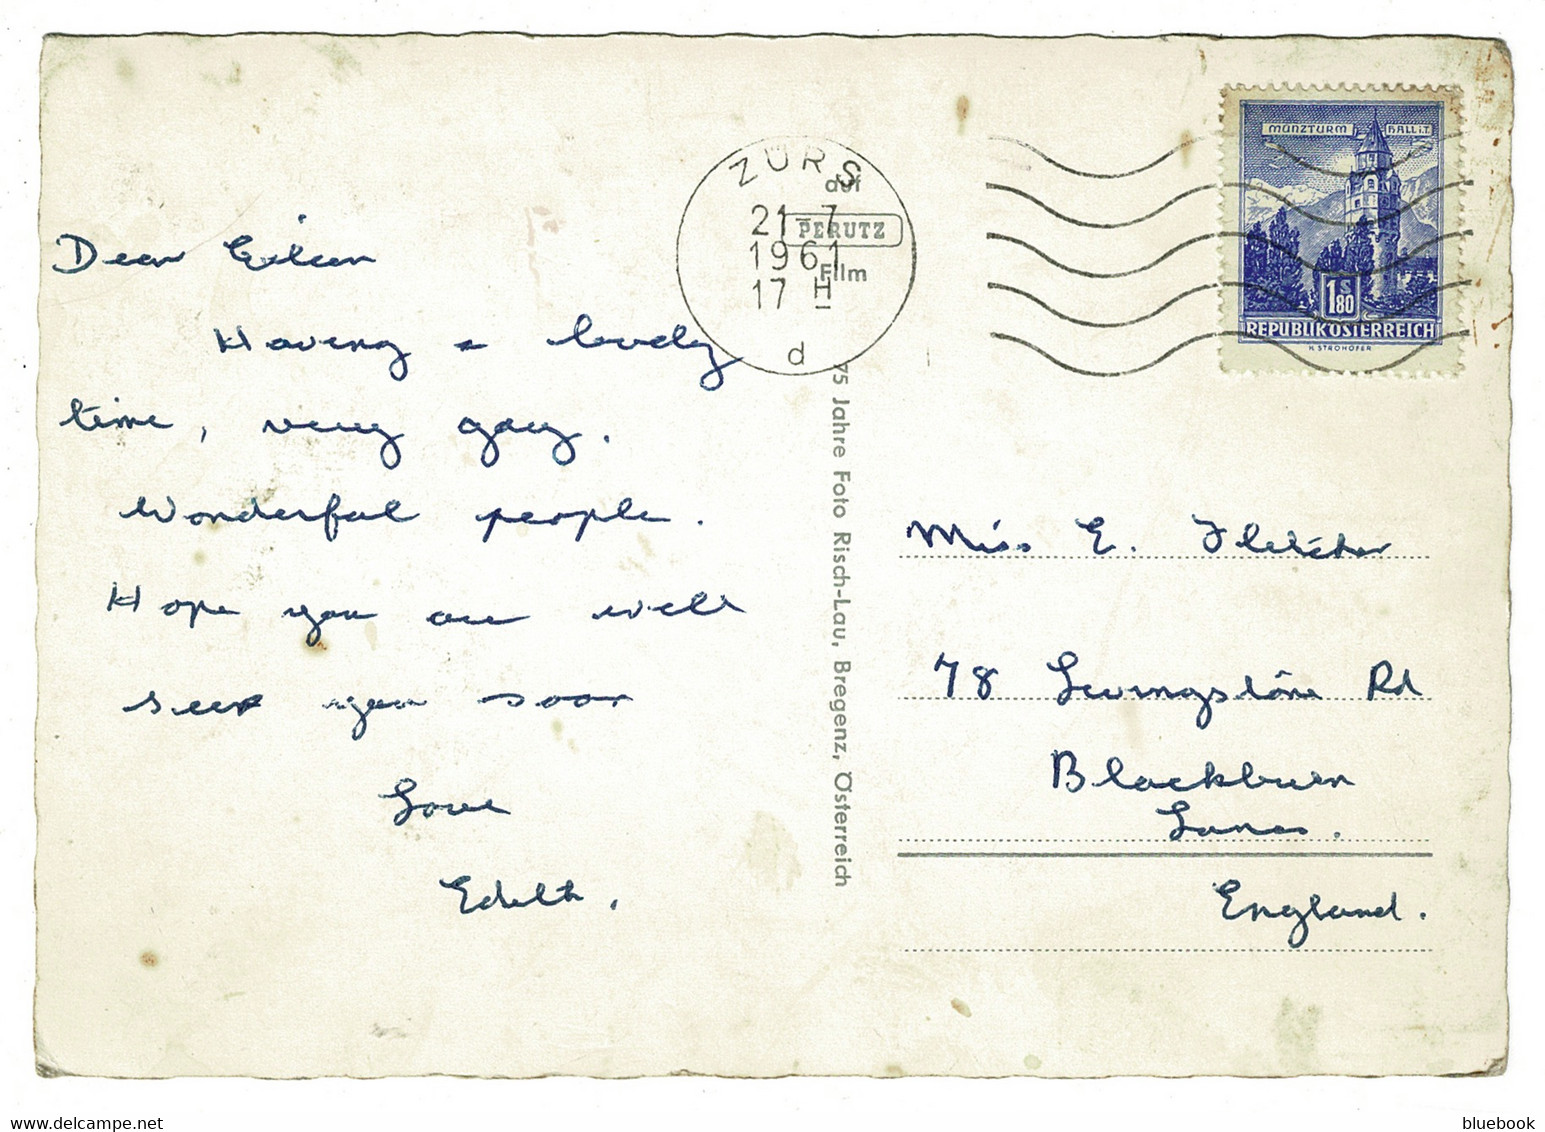 Dear Eileen
Having a lovely
time, very gay.
Wonderful people.
Hope you are well
see you soon
Love
Edith.
ZÜRS
21-7
1961
17 H
d
auf
PERUTZ
Film
75 Jahre Foto Risch-Lau, Bregenz, Österreich
MÜNZTURM HALL i.T.
S
1.80
REPUBLIK ÖSTERREICH
H. STROHOFER
Miss E. Fletcher
78 Livingstone Rd
Blackburn
Lancs.
England.
bluebook